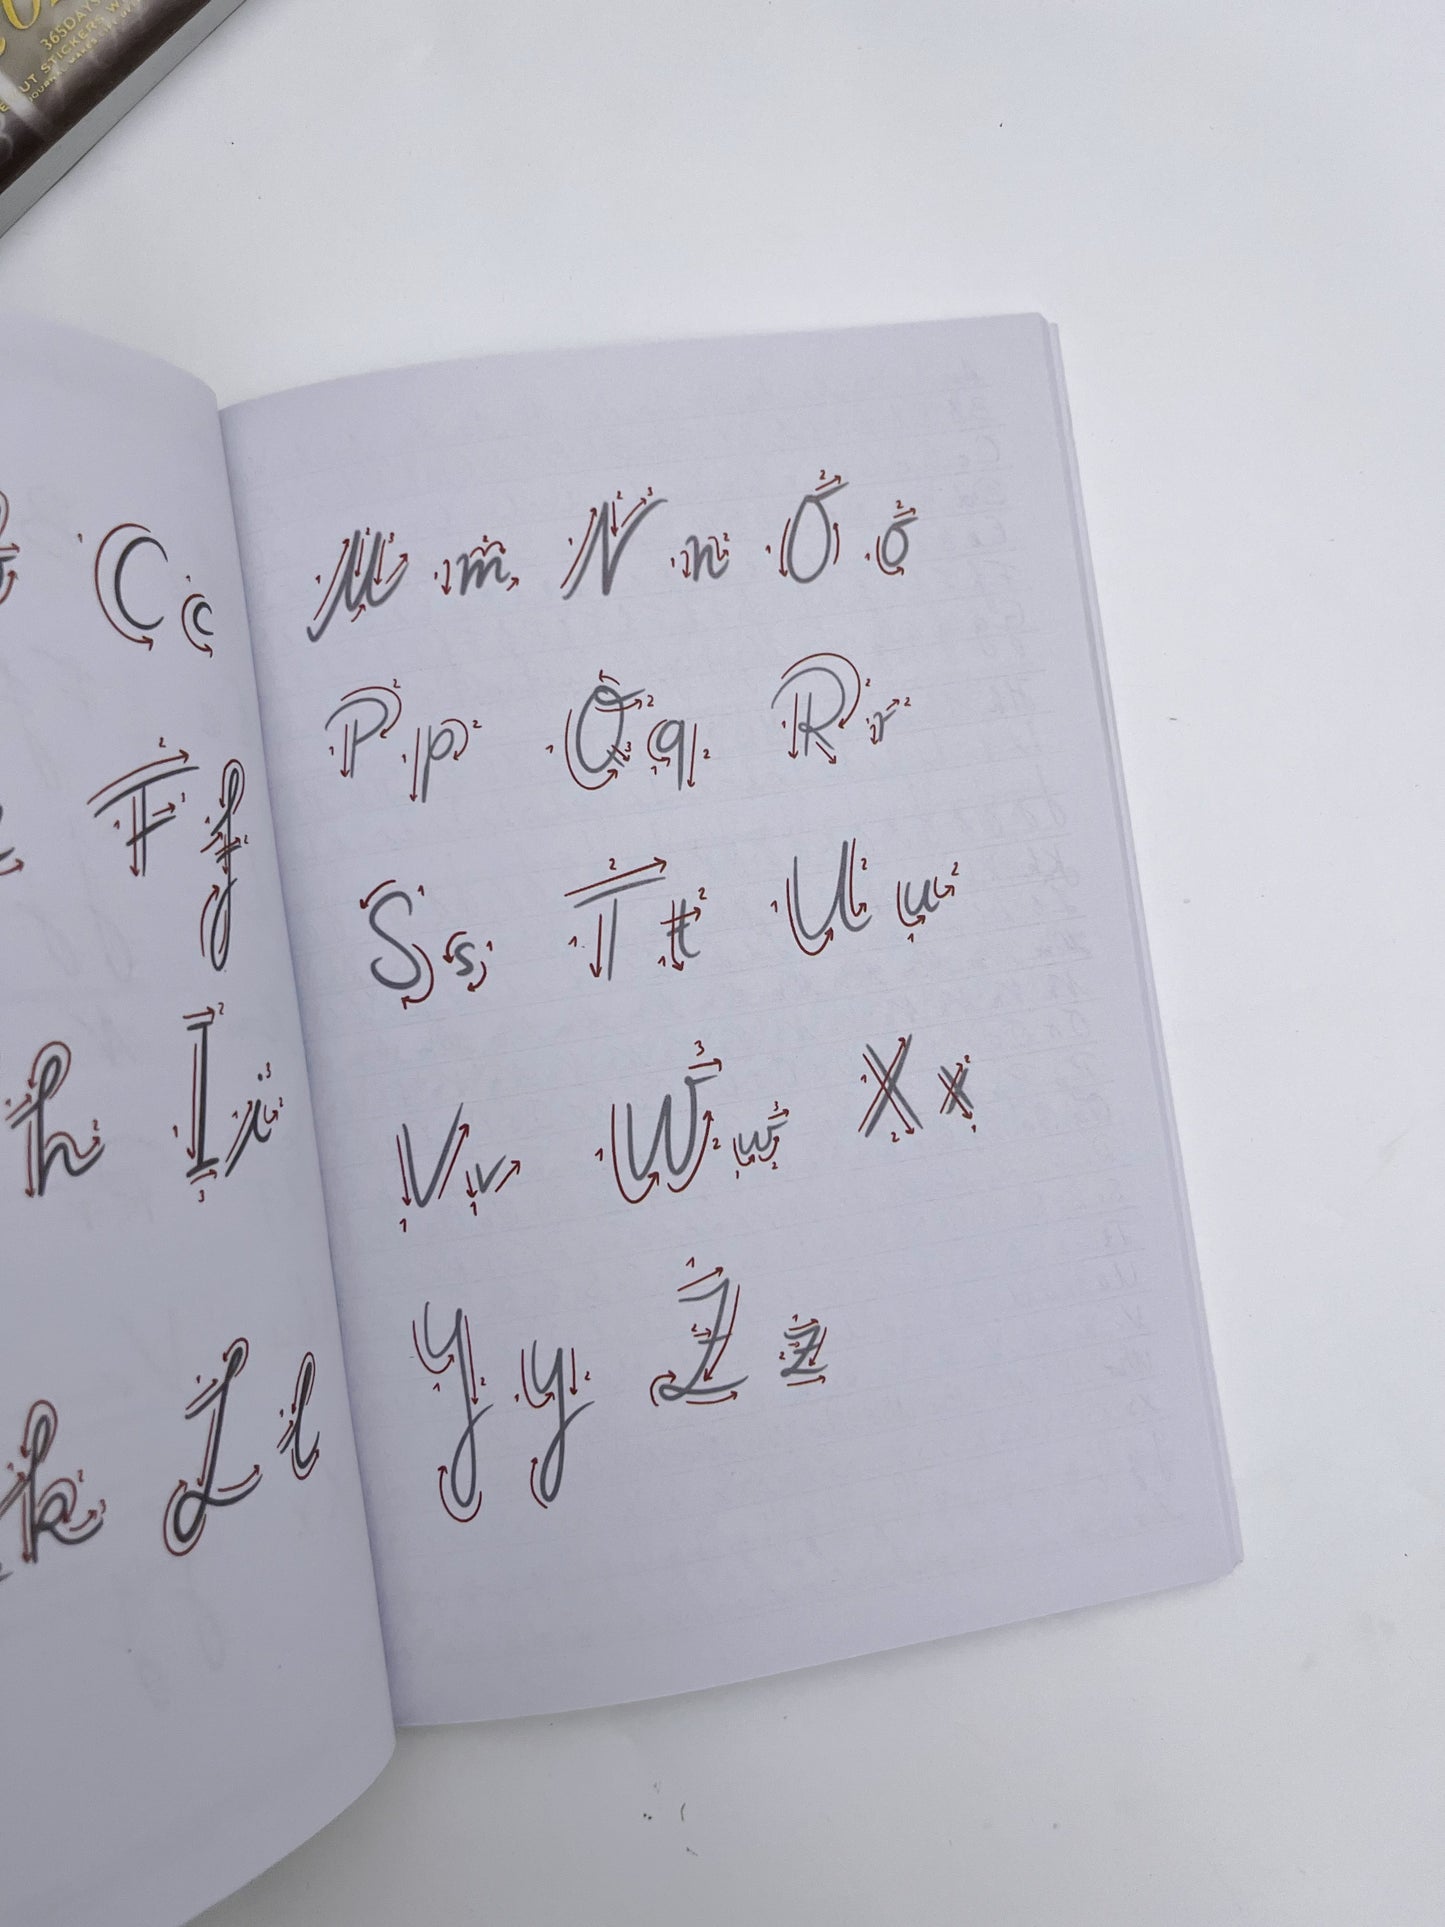 365DAYS
UT STICKERS W
C c
F f
h I i
k L l
M m N n O o
P p Q q R r
S s T t U u
V v W w X x
Y y Z z